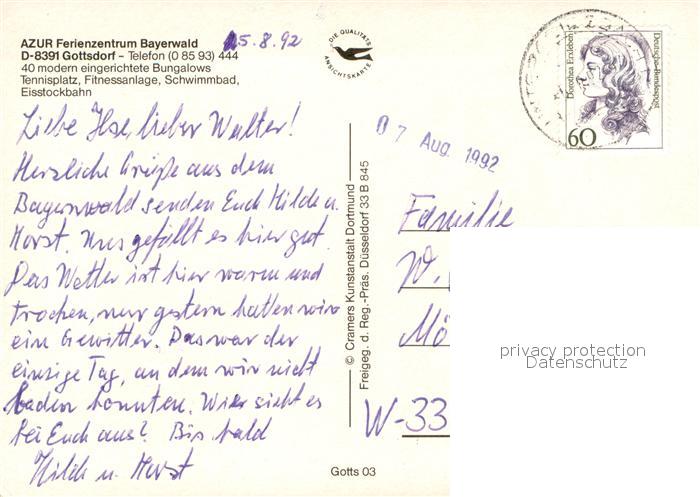 AZUR Ferienzentrum Bayerwald
D-8391 Gottsdorf – Telefon (0 85 93) 444
40 modern eingerichtete Bungalows
Tennisplatz, Fitnessanlage, Schwimmbad,
Eisstockbahn
5.8.92
Liebe Ilse, lieber Walter!
Herzliche Grüße aus dem
Bayernwald senden Euch Hilde u.
Horst. Uns gefällt es hier gut.
Das Wetter ist hier warm und
trocken, nur gestern hatten wir
ein Gewitter. Das war der
einzige Tag, an dem wir nicht
baden konnten. Wie sieht es
bei Euch aus? Bis bald
Hilde u. Horst
DIE QUALITÄTS
ANSICHTSKARTE
© Cramers Kunstanstalt Dortmund
Freigeg. d. Reg.-Präs. Düsseldorf 33 B 845
07 Aug. 1992
Dorothea Erxleben
Deutsche Bundespost
60
Familie
W.
Mö
W-33
privacy protection
Datenschutz
Gotts 03